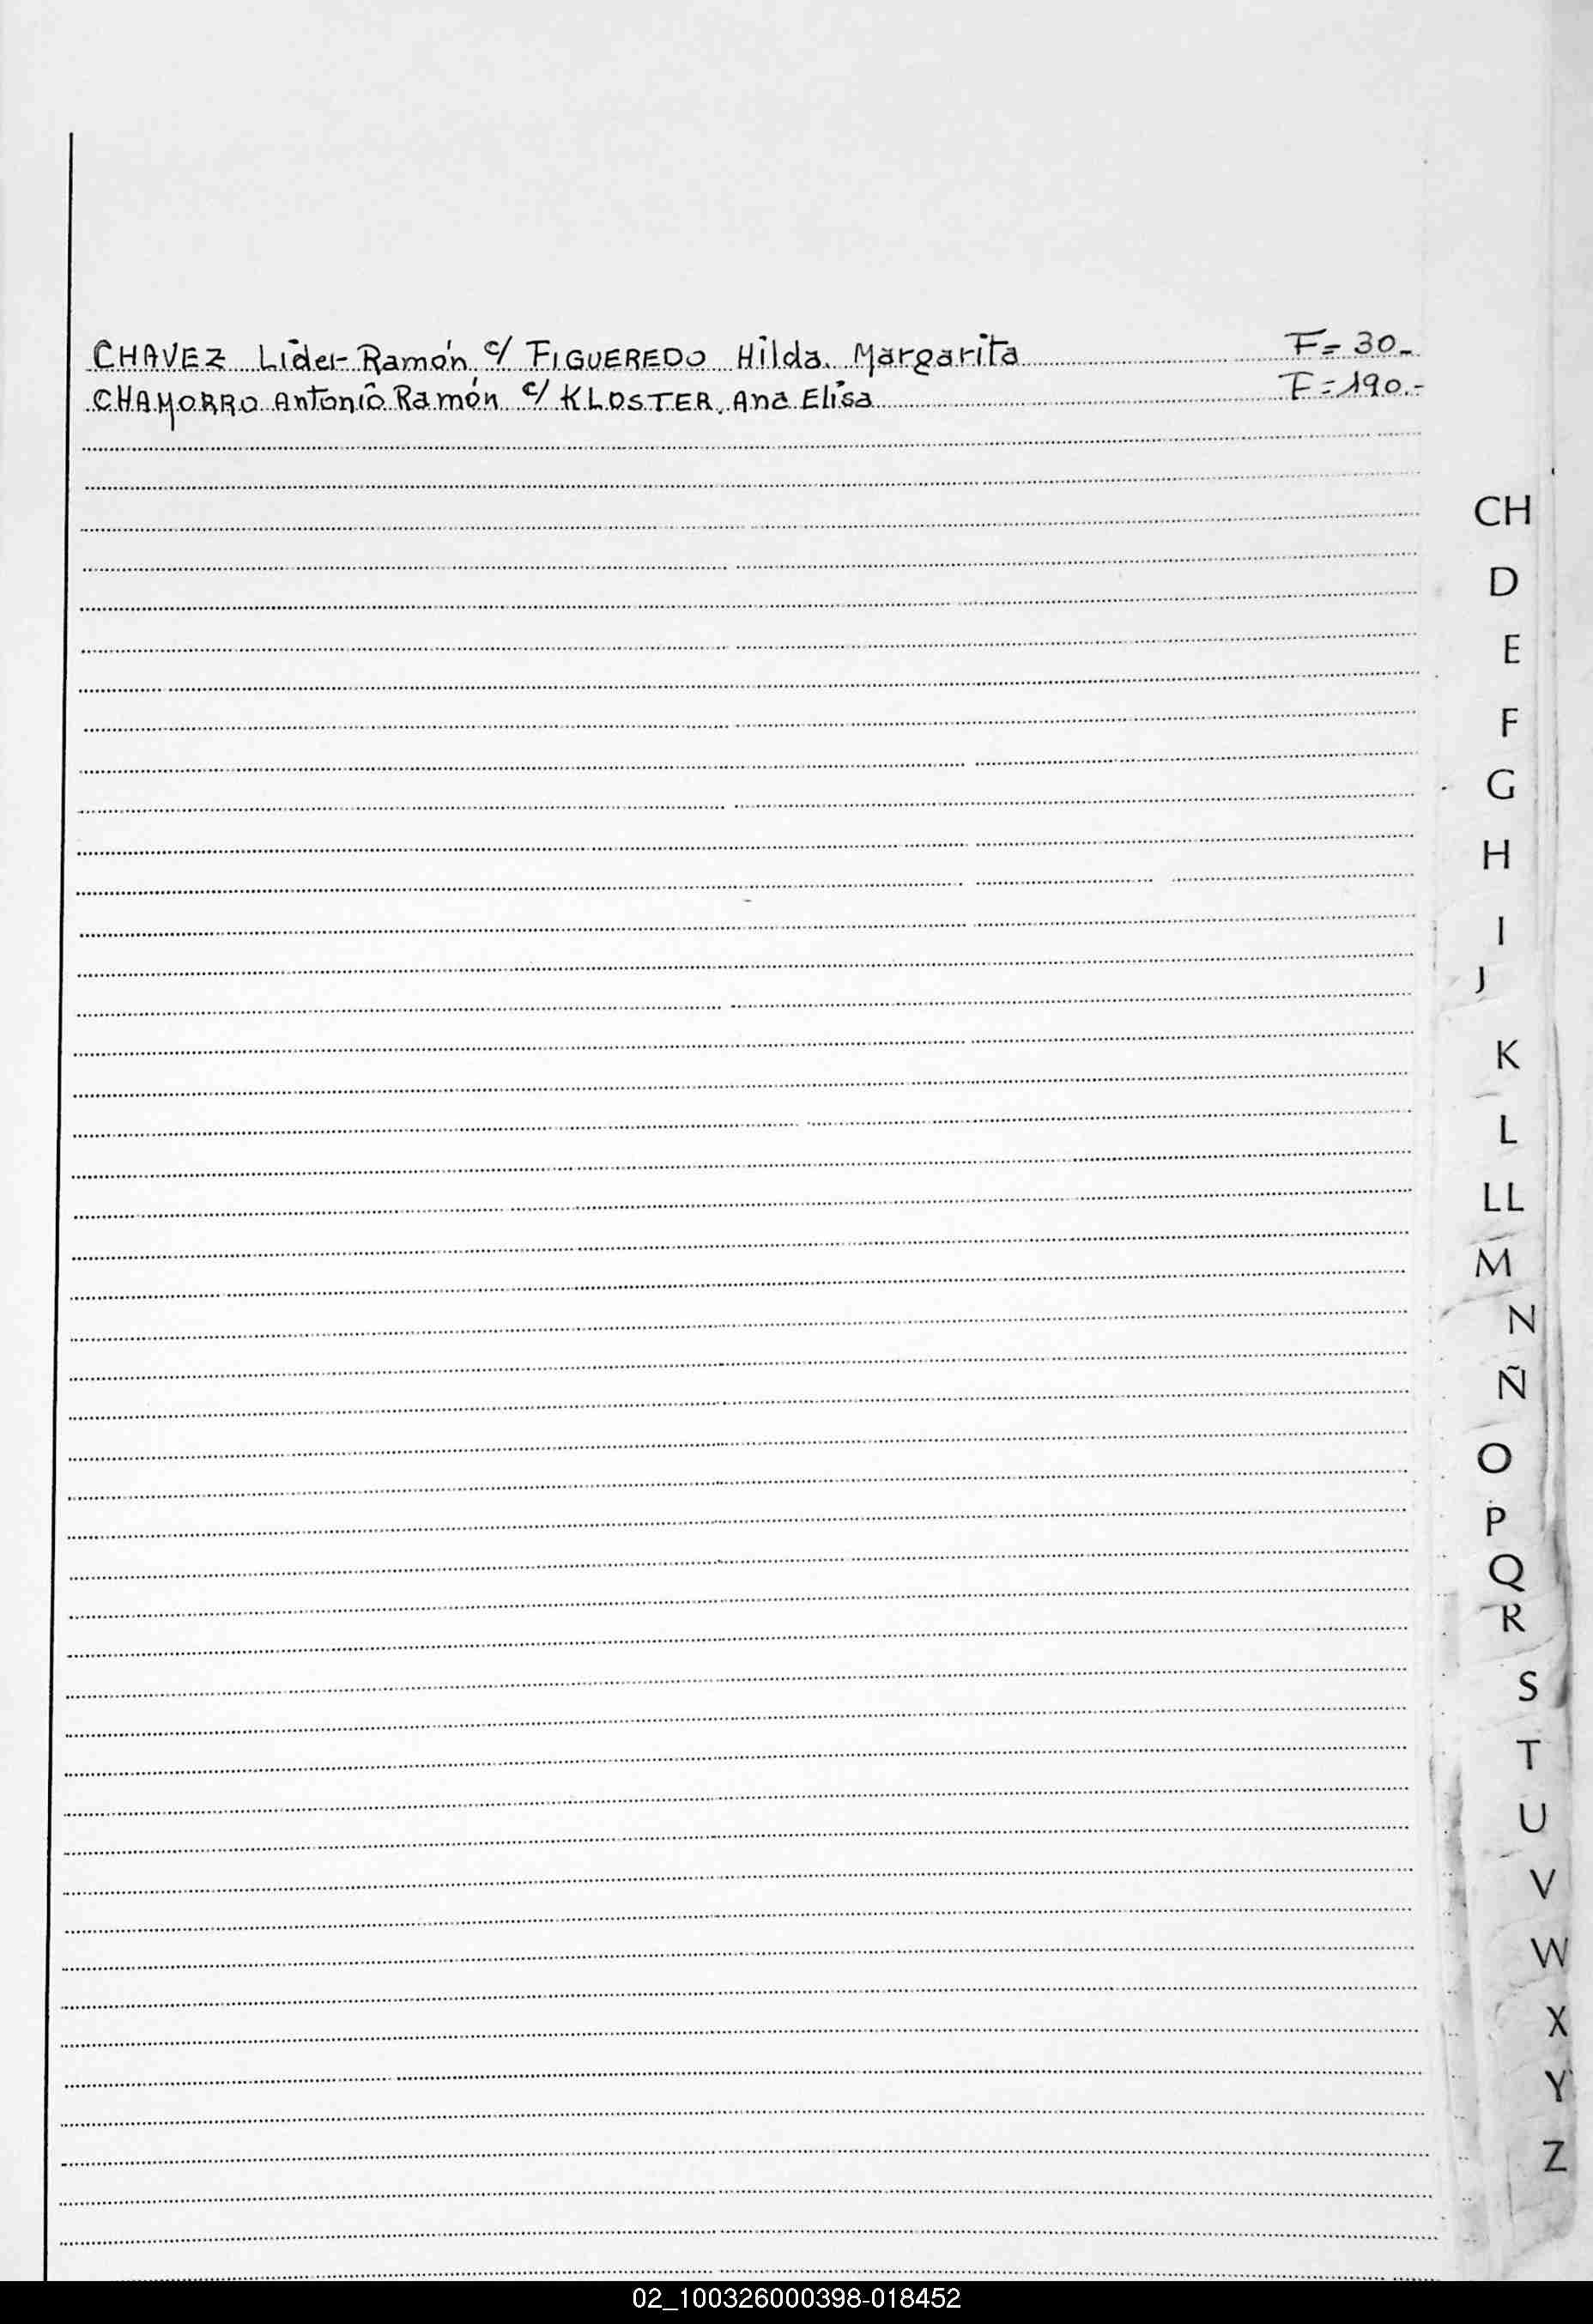 CHAVEZ Lider Ramón c/ FIGUEREDO Hilda Margarita F= 30.-
CHAMORRO Antonio Ramón c/ KLOSTER, Ana Elisa F= 190.-
CH
D
E
F
G
H
I
J
K
L
LL
M
N
Ñ
O
P
Q
R
S
T
U
V
W
X
Y
Z
02_100326000398-018452